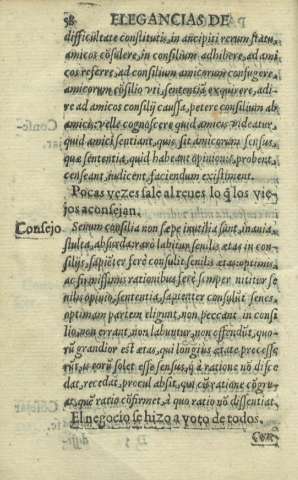 58 ELEGANCIAS DE
difficultate constitutis, in ancipiti rerum statu,
amicos cōsulere, in consilium adhibere, ad ami
cos referre, ad consilium amicorum confugere,
amicorum cōsilio vti, sententiā exquirere, adi-
re ad amicos consilij caussa, petere consilium ab
amicis: velle cognoscere quid amicis videatur,
quid amici sentiant, quis sit amicorum sensus,
quæ sententia, quid habeant opinionis, probent,
censeant, iudicent, faciendum existiment.
Pocas vezes sale al reues lo q̃ los vie
jos aconsejan.
Consejo
Senum consilia non sæpe inutilia sunt, inania,
stulta, absurda: rarò labitur senilis ætas in con-
silijs, sapiēter ferè consulit senilis ætas: optimis,
ac firmissimis rationibus ferè semper nititur se
nilis opinio, sententia, sapienter consulūt senes,
optimam partem eligunt, non peccant in consi
lio, non errant, non labuntur, non offendūt, quo-
rū grandior est ætas, qui longiùs ætate processe
rūt, ij eorū solet esse sensus, q̃ à ratione nō disce
dat, recedat, procul absit, qui cū ratione cōgru
at, quē ratio cōfirmet, à quo ratio nō dissentiat
El negocio se hizo a voto de todos.